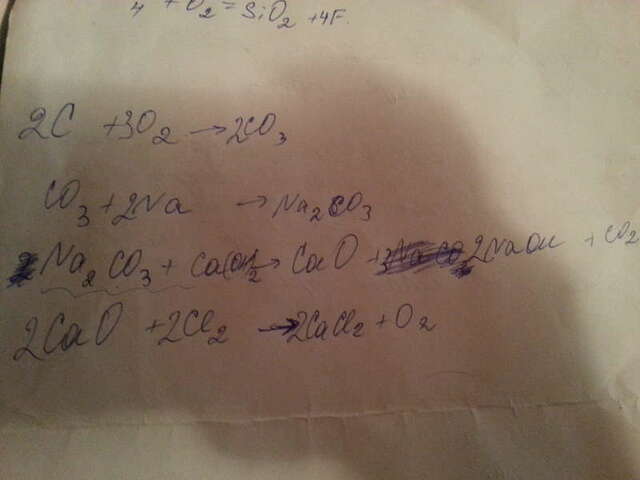 4 + O2 = SiO2 + 4F
2C + 3O2 → 2CO3
CO3 + 2Na → Na2CO3
Na2CO3 + Ca(OH)2 → CaO + 2NaOH + CO2
2CaO + 2Cl2 → 2CaCl2 + O2